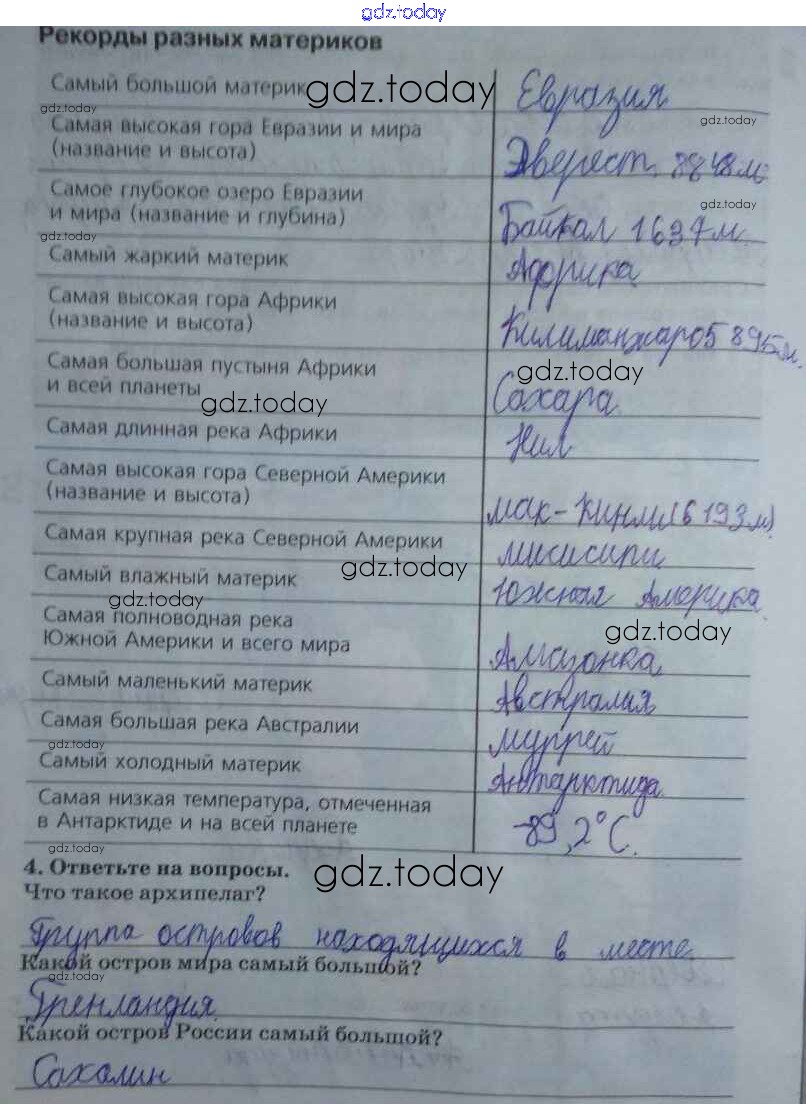 gdz.today
Рекорды разных материков
Самый большой материк gdz.today Евразия
gdz.today
Самая высокая гора Евразии и мира gdz.today
(название и высота) Эверест 8848м.
Самое глубокое озеро Евразии
и мира (название и глубина) gdz.today
gdz.today Байкал 1637м.
Самый жаркий материк Африка
Самая высокая гора Африки
(название и высота) Килиманжаро5895м.
Самая большая пустыня Африки
и всей планеты gdz.today
gdz.today Сахара.
Самая длинная река Африки Нил.
Самая высокая гора Северной Америки
(название и высота) мак-Кинли(6193м).
Самая крупная река Северной Америки мисисипи
gdz.today
Самый влажный материк Южная Америка.
gdz.today
Самая полноводная река
gdz.today
Южной Америки и всего мира Амазонка,
Самый маленький материк Австралия
Самая большая река Австралии муррей
gdz.today
Самый холодный материк Антарктида.
Самая низкая температура, отмеченная
в Антарктиде и на всей планете -89,2°С.
gdz.today
4. Ответьте на вопросы.
gdz.today
Что такое архипелаг?
Группа островов находящихся в месте.
Какой остров мира самый большой?
gdz.today
Гренландия.
Какой остров России самый большой?
Сахалин